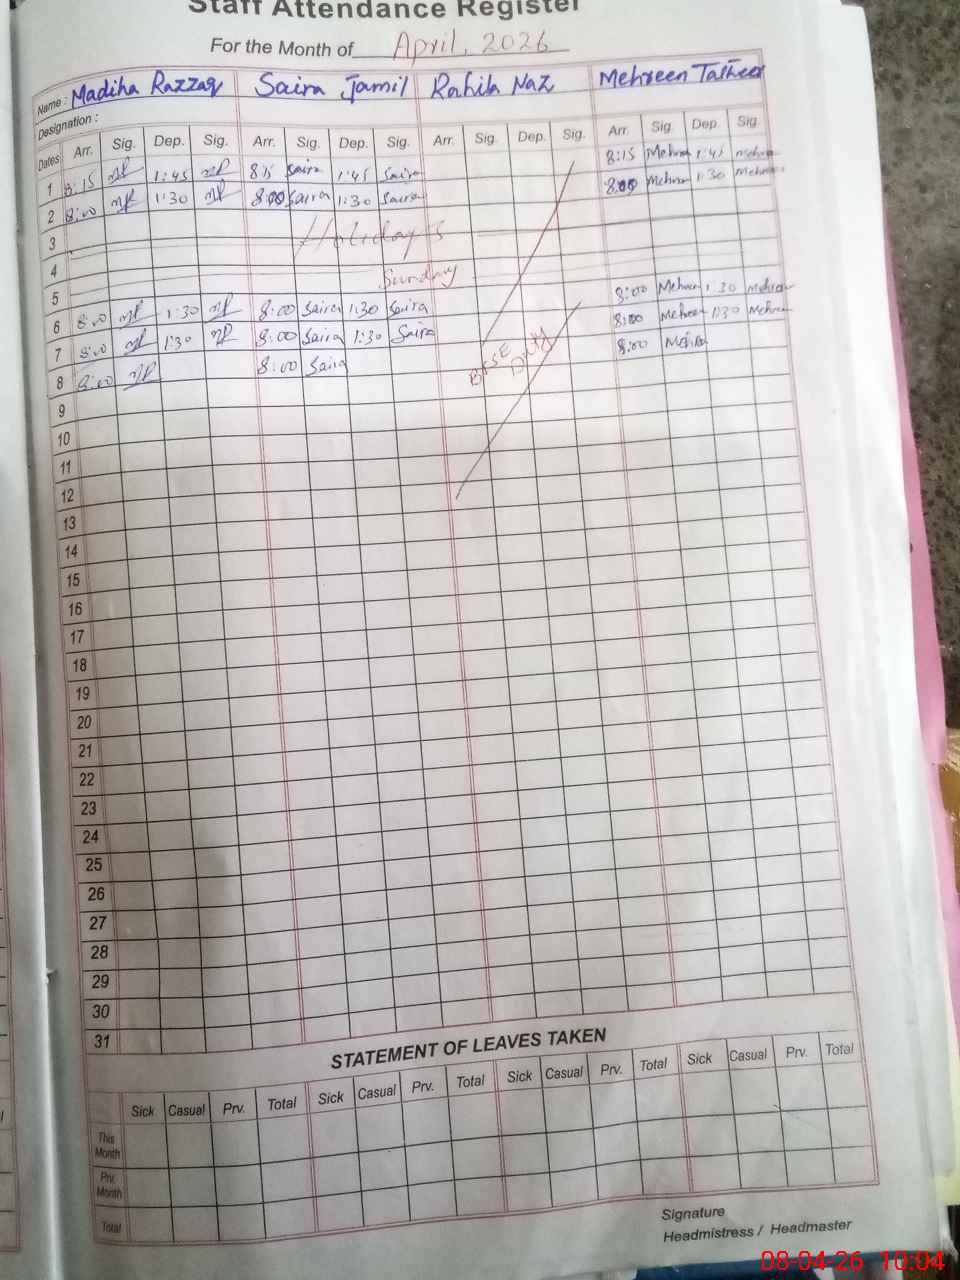 Staff Attendance Register
For the Month of April, 2026
Name : Madiha Razzaq Saira Jamil Rahila Naz Mehreen Tasheer
Designation :
Dates Arr. Sig. Dep. Sig. Arr. Sig. Dep. Sig. Arr. Sig. Dep. Sig. Arr. Sig. Dep. Sig.
1 8:15 MR 1:45 MR 8:15 Saira 1:45 Saira 8:15 Mehreen 1:45 Mehreen
2 8:00 MR 1:30 MR 8:00 Saira 1:30 Saira 8:00 Mehreen 1:30 Mehreen
3 Holidays
4
5 Sunday
6 8:00 MR 1:30 MR 8:00 Saira 1:30 Saira 8:00 Mehreen 1:30 Mehreen
7 8:00 MR 1:30 MR 8:00 Saira 1:30 Saira 8:00 Mehreen 1:30 Mehreen
8 8:00 MR 8:00 Saira BISE Duty 8:00 Mehreen
9
10
11
12
13
14
15
16
17
18
19
20
21
22
23
24
25
26
27
28
29
30
31
STATEMENT OF LEAVES TAKEN
Sick Casual Prv. Total Sick Casual Prv. Total Sick Casual Prv. Total Sick Casual Prv. Total
This Month
Prv. Month
Total
Signature
Headmistress / Headmaster
08-04-26 10:04